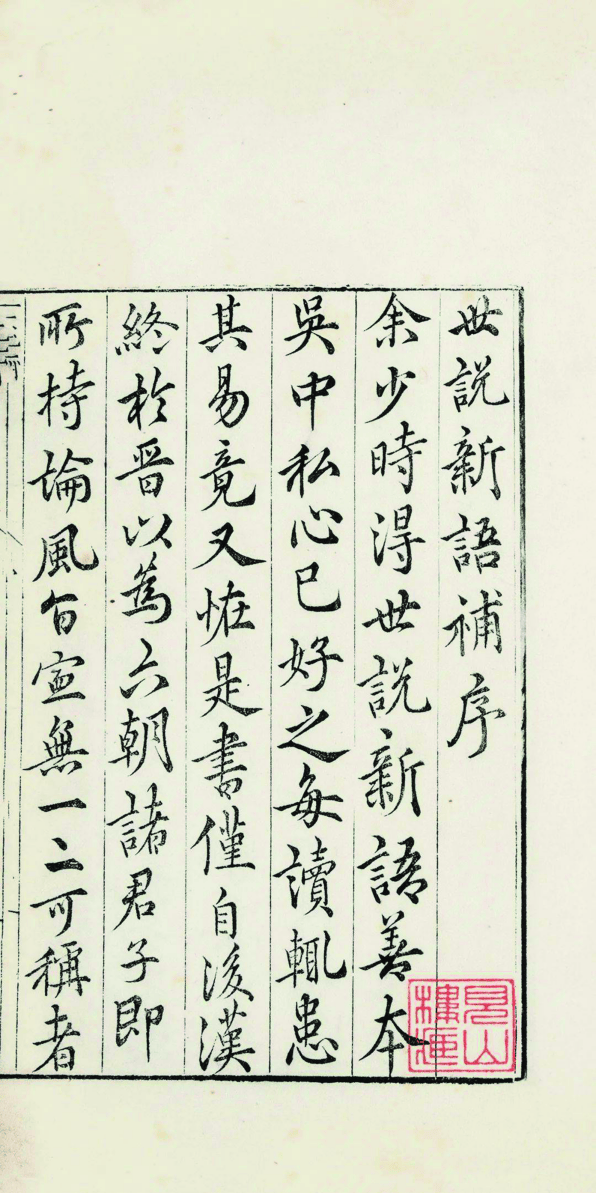 世說新語補序
余少時得世說新語善本
吳中私心已好之每讀輒患
其易竟又怪是書僅自後漢
終於晉以為六朝諸君子即
所持論風旨寧無一二可稱者
見山樓